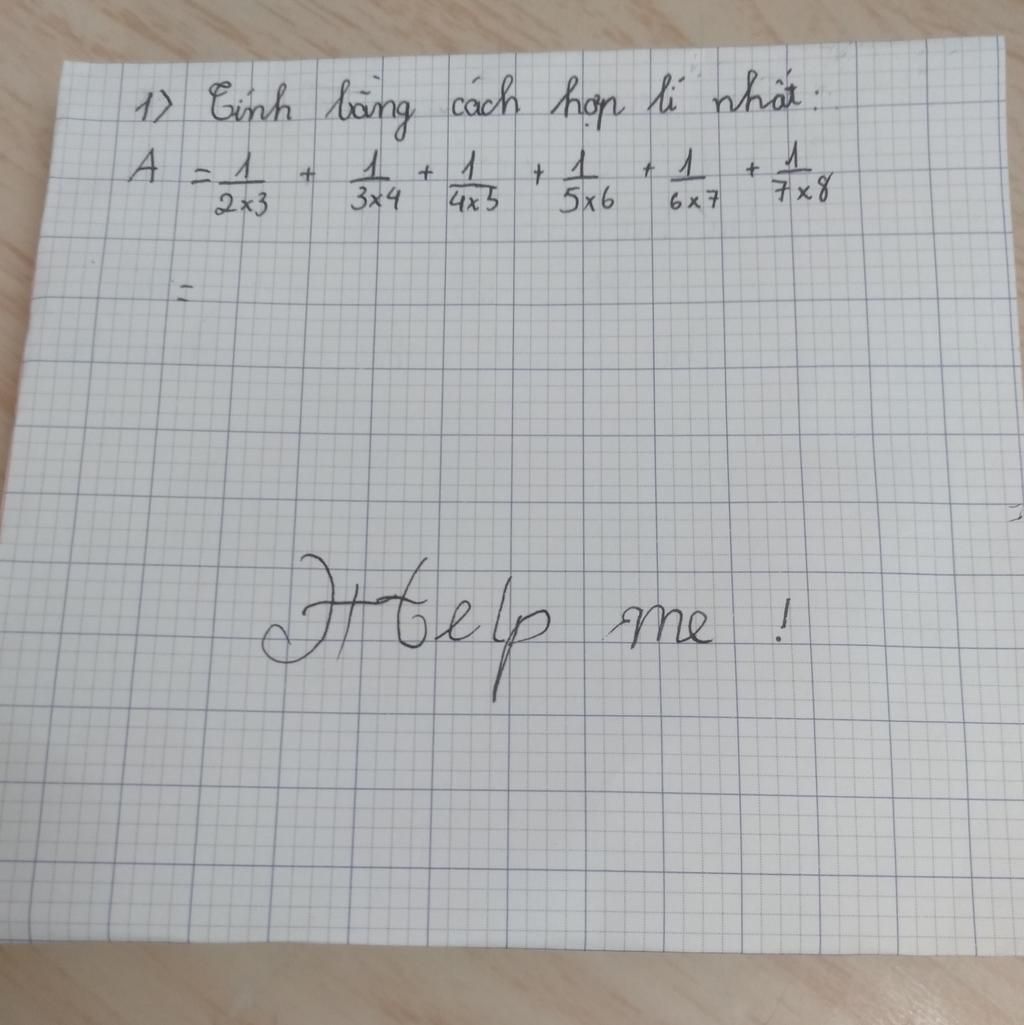 1) Tính bằng cách hợp lí nhất:
A = 1/2×3 + 1/3×4 + 1/4×5 + 1/5×6 + 1/6×7 + 1/7×8
=
Help me !